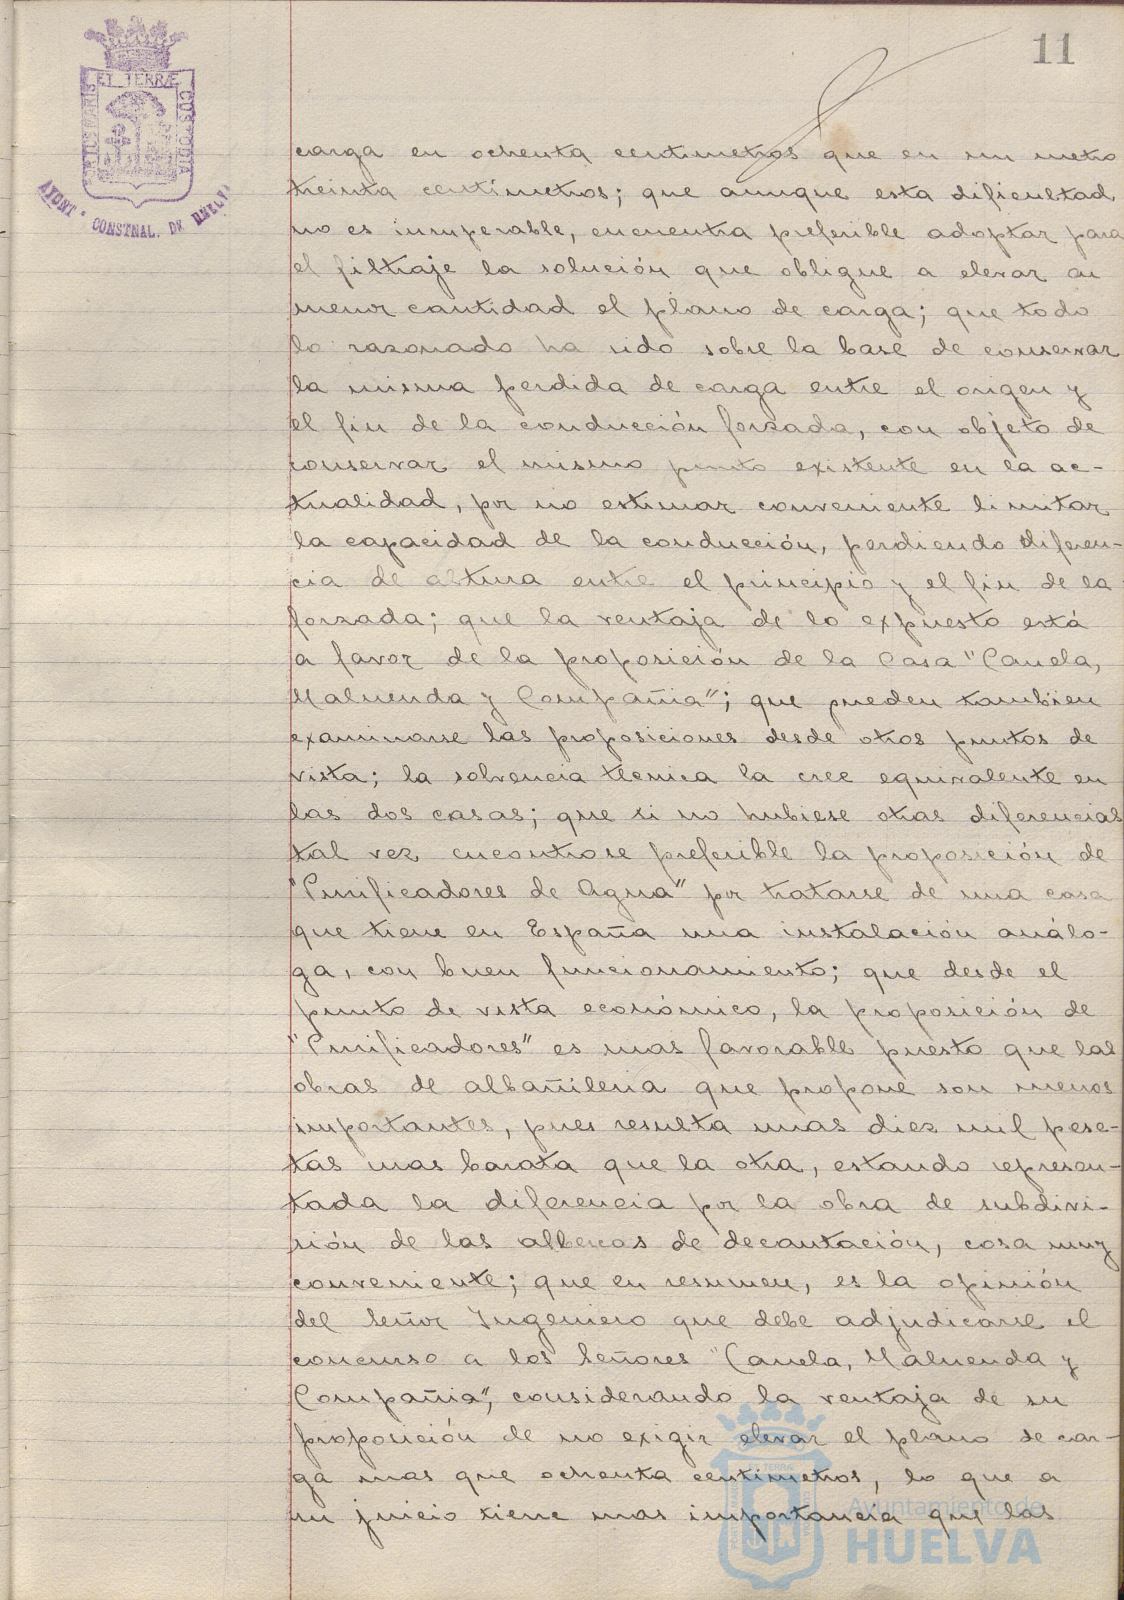 11
PORTUS MARIS ET TERRÆ CUSTODIA
AYUNT° CONSTNAL. DE HUELVA
carga en ochenta centimetros que en un metro
treinta centímetros; que aunque esta dificultad
no es insuperable, encuentra preferible adoptar para
el filtraje la solución que obligue a elevar en
menor cantidad el plano de carga; que todo
lo razonado ha sido sobre la base de conservar
la misma perdida de carga entre el origen y
el fin de la conducción forzada, con objeto de
conservar el mismo punto existente en la ac-
tualidad, por no estimar conveniente limitar
la capacidad de la conducción, perdiendo diferen-
cia de altura entre el principio y el fin de la
forzada; que la ventaja de lo expuesto está
a favor de la proposición de la Casa "Canela,
Maluenda y Compañia"; que pueden tambien
examinarse las proposiciones desde otros puntos de
vista; la solvencia tecnica la cree equivalente en
las dos casas; que si no hubiese otras diferencias
tal vez encontrase preferible la proposición de
"Purificadores de Agua" por tratarse de una casa
que tiene en España una instalación análo-
ga, con buen funcionamiento; que desde el
punto de vista económico, la proposición de
"Purificadores" es mas favorable puesto que las
obras de albañileria que propone son menos
importantes, pues resulta unas diez mil pese-
tas mas barata que la otra, estando represen-
tada la diferencia por la obra de subdivi-
sión de las albercas de decantación, cosa muy
conveniente; que en resumen, es la opinión
del Señor Ingeniero que debe adjudicarse el
concurso a los Señores "Canela, Maluenda y
Compañia", considerando la ventaja de su
proposición de no exigir elevar el plano de car-
ga mas que ochenta centimetros, lo que a
su juicio tiene mas importancia que las
Ayuntamiento de
HUELVA